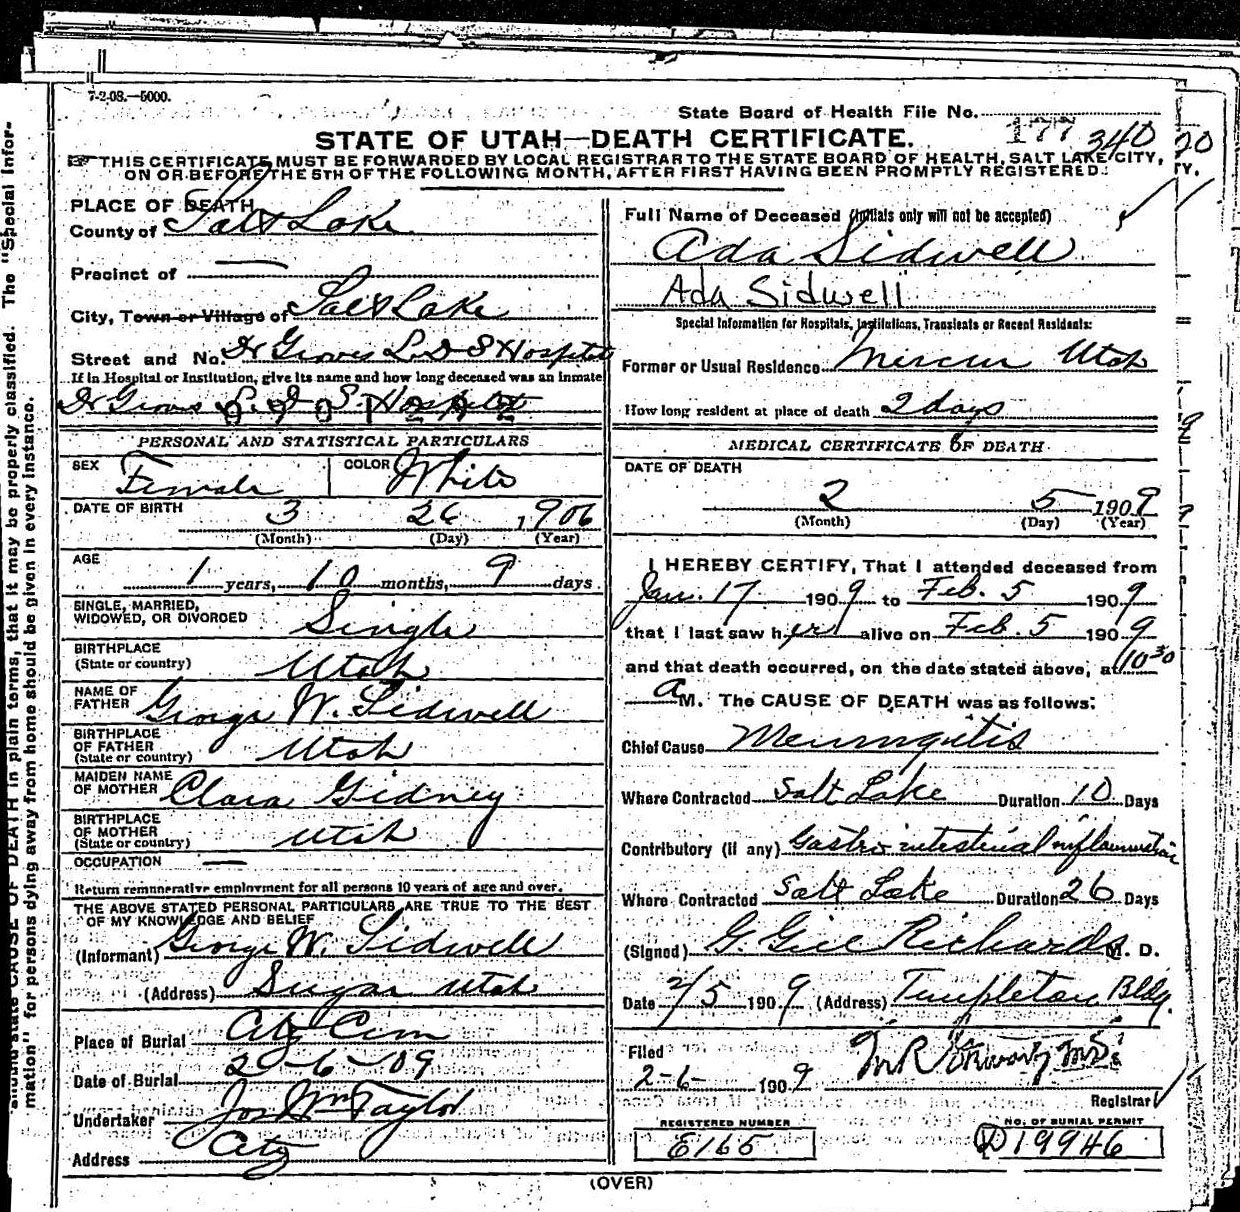 7-2-08.—5000.
State Board of Health File No. 177 340
STATE OF UTAH—DEATH CERTIFICATE.
☞ THIS CERTIFICATE MUST BE FORWARDED BY LOCAL REGISTRAR TO THE STATE BOARD OF HEALTH, SALT LAKE CITY,
ON OR BEFORE THE 5TH OF THE FOLLOWING MONTH, AFTER FIRST HAVING BEEN PROMPTLY REGISTERED.
PLACE OF DEATH
County of Salt Lake
Precinct of —
City, Town or Village of Salt Lake
Street and No. Dr Groves L. D S Hospital
If in Hospital or Institution, give its name and how long deceased was an inmate
Dr Groves L. D. S. Hospital
PERSONAL AND STATISTICAL PARTICULARS
SEX Female COLOR White
DATE OF BIRTH 3 26 1906
(Month) (Day) (Year)
AGE 1 years, 10 months, 9 days
SINGLE, MARRIED,
WIDOWED, OR DIVORCED Single
BIRTHPLACE
(State or country) Utah
NAME OF
FATHER George W. Sidwell
BIRTHPLACE
OF FATHER
(State or country) Utah
MAIDEN NAME
OF MOTHER Clara Gidney
BIRTHPLACE
OF MOTHER
(State or country) Utah
OCCUPATION —
Return remunerative employment for all persons 10 years of age and over.
THE ABOVE STATED PERSONAL PARTICULARS ARE TRUE TO THE BEST
OF MY KNOWLEDGE AND BELIEF
(Informant) George W. Sidwell
(Address) Sugar Utah
Place of Burial City Cem
Date of Burial 2-6-09
Undertaker Jos Wm Taylor
Address City
Full Name of Deceased (Initials only will not be accepted)
Ada Sidwell
Ada Sidwell
Special Information for Hospitals, Institutions, Transients or Recent Residents:
Former or Usual Residence Mercur Utah
How long resident at place of death 2 days
MEDICAL CERTIFICATE OF DEATH
DATE OF DEATH
2 5 1909
(Month) (Day) (Year)
I HEREBY CERTIFY, That I attended deceased from
Jan. 17 1909 to Feb. 5 1909
that I last saw her alive on Feb. 5 1909
and that death occurred, on the date stated above, at 10 30
a M. The CAUSE OF DEATH was as follows:
Chief Cause Meningitis
Where Contracted Salt Lake Duration 10 Days
Contributory (if any) Gastro intestinal inflammation
Where Contracted Salt Lake Duration 26 Days
(Signed) G. Gill Richards M. D.
Date 2/5 1909 (Address) Templeton Bldg.
Filed
2-6- 1909
Registrar
REGISTERED NUMBER
E165
NO. OF BURIAL PERMIT
D19946
(OVER)
should state CAUSE OF DEATH in plain terms, that it may be properly classified. The "Special Infor-
mation" for persons dying away from home should be given in every instance.